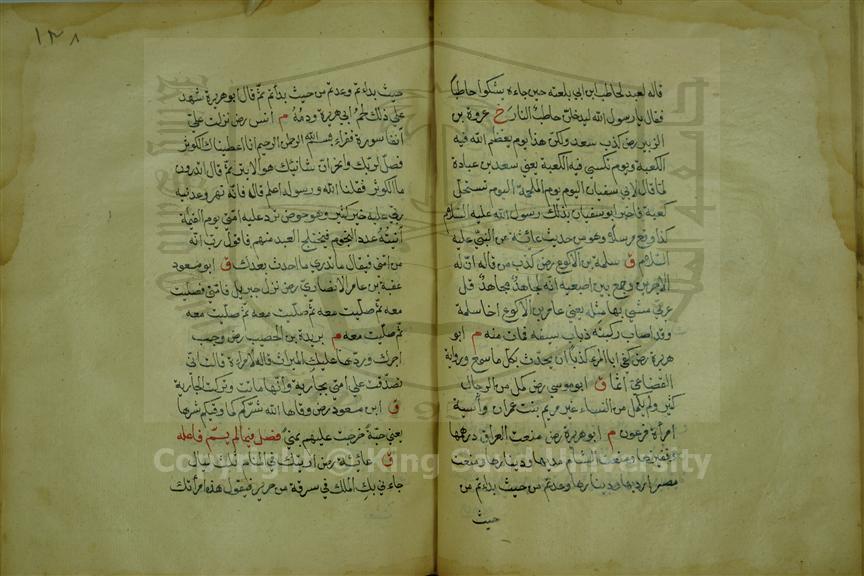 قاله لعبد لحاطب ابن ابي بلتعه حين جاءه يشكوا حاطبًا
فقال يا رسول الله ليدخلن حاطب النار خ عروة بن
الزبير رض كذب سعد ولكن هذا يوم يعظم الله فيه
الكعبة ويوم تكسى فيه الكعبة يعني سعد بن عبادة
لما قال لابي سفيان اليوم يوم الملحمة اليوم تستحل
كعبة فاخبر ابو سفيان بذلك رسول الله عليه السلام
كذا وقع مرسلا وهو من حديث عائشة عن النبي عليه
السلام ق سلمة بن الاكوع رض كذب من قاله ان له
لاجرين وجمع بين اصبعيه انه لجاهد مجاهد قل
عربي مشى بها مثله يعني عامر بن الاكوع اخا سلمة
وقد اصاب ركبته ذباب سيفه فمات منه م ابو
هريرة رض كفى بالمرء كذبا ان يحدث بكل ما سمع ورواية
القضاعي اثما ق ابو موسى رض كمل من الرجال
كثير ولم يكمل من النساء غير مريم بنت عمران وآسية
امرأة فرعون م ابو هريرة رض منعت العراق درهمها
وقفيزها ومنعت الشام مديها ودينارها ومنعت
مصر اردبها ودينارها وعدتم من حيث بدأتم من
حيث
١٣٨
حيث بدأتم وعدتم من حيث بدأتم ثم قال ابو هريرة شهد
على ذلك لحم ابي هريرة ودمه م انس رض نزلت علي
آنفا سورة فقراء بسم الله الرحمن الرحيم انا اعطيناك الكوثر
فصل لربك وانحر ان شانئك هو الابتر ثم قال اتدرون
ما الكوثر فقلنا الله ورسوله اعلم قال فانه نهر وعدنيه
ربي عليه خير كثير وهو حوض ترد عليه امتي يوم القيمة
آنيته عدد النجوم فيختلج العبد منهم فاقول رب انه
من امتي فيقال ما تدري ما احدث بعدك ق ابو مسعود
عقبة بن عامر الانصاري رض نزل جبريل فامني فصليت
معه ثم صليت معه ثم صليت معه ثم صليت معه
ثم صليت معه م بريدة بن الحصيب رض وجب
اجرك وردها عليك الميراث قاله لامراة قالت اني
تصدقت على امي بجارية وانها ماتت وتركت الجارية
ق ابن مسعود رض وقاها الله شركم كما وقيكم شرها
يعني حية خرجت عليهم بمنى فصل فيما لم يسم فاعله
ق عائشة رض اريتك في المنام ثلث ليال
جاءني بك الملك في سرقة من حرير فيقول هذه امرأتك
Copyright © King Saud University